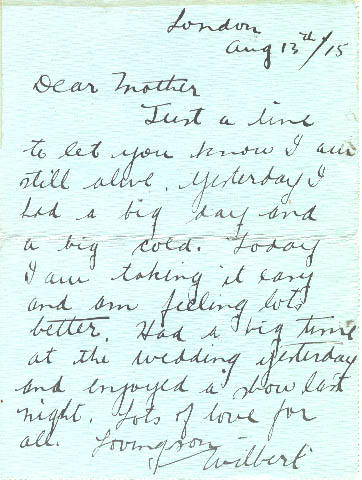 London
Aug 13th/15
Dear Mother
Just a line
to let you know I am
still alive. Yesterday I
had a big day and
a big cold. Today
I am taking it easy
and am feeling lots
better. Had a big time
at the wedding yesterday
and enjoyed a show last
night. Lots of love for
all. Loving son
Wilbert